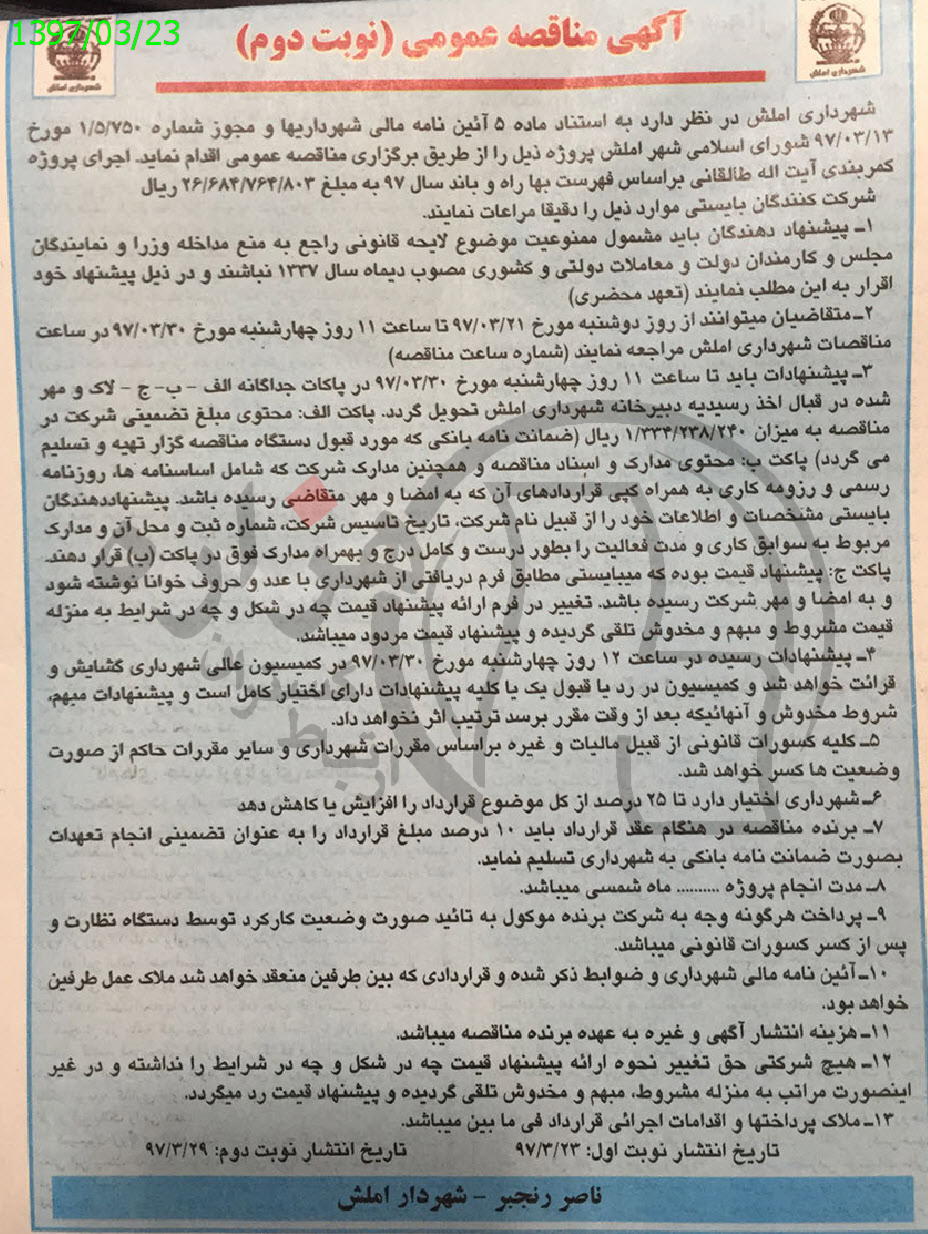 1397/03/23
آگهی مناقصه عمومی (نوبت دوم)
شهرداری املش
شهرداری املش
شهرداری املش در نظر دارد به استناد ماده ۵ آئین نامه مالی شهرداریها و مجوز شماره ۱/۵/۷۵۰ مورخ
۹۷/۰۳/۱۳ شورای اسلامی شهر املش پروژه ذیل را از طریق برگزاری مناقصه عمومی اقدام نماید. اجرای پروژه
کمربندی آیت اله طالقانی براساس فهرست بها راه و باند سال ۹۷ به مبلغ ۲۶/۶۸۴/۷۶۴/۸۰۳ ریال
شرکت کنندگان بایستی موارد ذیل را دقیقا مراعات نمایند.
۱ـ پیشنهاد دهندگان باید مشمول ممنوعیت موضوع لایحه قانونی راجع به منع مداخله وزرا و نمایندگان
مجلس و کارمندان دولت و معاملات دولتی و کشوری مصوب دیماه سال ۱۳۳۷ نباشند و در ذیل پیشنهاد خود
اقرار به این مطلب نمایند (تعهد محضری)
۲ـ متقاضیان میتوانند از روز دوشنبه مورخ ۹۷/۰۳/۲۱ تا ساعت ۱۱ روز چهارشنبه مورخ ۹۷/۰۳/۳۰ در ساعت
مناقصات شهرداری املش مراجعه نمایند (شماره ساعت مناقصه)
۳ـ پیشنهادات باید تا ساعت ۱۱ روز چهارشنبه مورخ ۹۷/۰۳/۳۰ در پاکات جداگانه الف - ب- ج - لاک و مهر
شده در قبال اخذ رسیدیه دبیرخانه شهرداری املش تحویل گردد. پاکت الف: محتوی مبلغ تضمینی شرکت در
مناقصه به میزان ۱/۳۳۴/۲۳۸/۲۴۰ ریال (ضمانت نامه بانکی که مورد قبول دستگاه مناقصه گزار تهیه و تسلیم
می گردد) پاکت ب: محتوی مدارک و اسناد مناقصه و همچنین مدارک شرکت که شامل اساسنامه ها، روزنامه
رسمی و رزومه کاری به همراه کپی قراردادهای آن که به امضا و مهر متقاضی رسیده باشد. پیشنهاددهندگان
بایستی مشخصات و اطلاعات خود را از قبیل نام شرکت، تاریخ تاسیس شرکت، شماره ثبت و محل آن و مدارک
مربوط به سوابق کاری و مدت فعالیت را بطور درست و کامل درج و بهمراه مدارک فوق در پاکت (ب) قرار دهند.
پاکت ج: پیشنهاد قیمت بوده که میبایستی مطابق فرم دریافتی از شهرداری با عدد و حروف خوانا نوشته شود
و به امضا و مهر شرکت رسیده باشد. تغییر در فرم ارائه پیشنهاد قیمت چه در شکل و چه در شرایط به منزله
قیمت مشروط و مبهم و مخدوش تلقی گردیده و پیشنهاد قیمت مردود میباشد.
۴ـ پیشنهادات رسیده در ساعت ۱۲ روز چهارشنبه مورخ ۹۷/۰۳/۳۰ در کمیسیون عالی شهرداری گشایش و
قرائت خواهد شد و کمیسیون در رد یا قبول یک یا کلیه پیشنهادات دارای اختیار کامل است و پیشنهادات مبهم،
شروط مخدوش و آنهائیکه بعد از وقت مقرر برسد ترتیب اثر نخواهد داد.
۵ـ کلیه کسورات قانونی از قبیل مالیات و غیره براساس مقررات شهرداری و سایر مقررات حاکم از صورت
وضعیت ها کسر خواهد شد.
۶ـ شهرداری اختیار دارد تا ۲۵ درصد از کل موضوع قرارداد را افزایش یا کاهش دهد
۷ـ برنده مناقصه در هنگام عقد قرارداد باید ۱۰ درصد مبلغ قرارداد را به عنوان تضمینی انجام تعهدات
بصورت ضمانت نامه بانکی به شهرداری تسلیم نماید.
۸ـ مدت انجام پروژه .......... ماه شمسی میباشد.
۹ـ پرداخت هرگونه وجه به شرکت برنده موکول به تائید صورت وضعیت کارکرد توسط دستگاه نظارت و
پس از کسر کسورات قانونی میباشد.
۱۰ـ آئین نامه مالی شهرداری و ضوابط ذکر شده و قراردادی که بین طرفین منعقد خواهد شد ملاک عمل طرفین
خواهد بود.
۱۱ـ هزینه انتشار آگهی و غیره به عهده برنده مناقصه میباشد.
۱۲ـ هیچ شرکتی حق تغییر نحوه ارائه پیشنهاد قیمت چه در شکل و چه در شرایط را نداشته و در غیر
اینصورت مراتب به منزله مشروط، مبهم و مخدوش تلقی گردیده و پیشنهاد قیمت رد میگردد.
۱۳ـ ملاک پرداختها و اقدامات اجرائی قرارداد فی ما بین میباشد.
تاریخ انتشار نوبت اول: ۹۷/۳/۲۳ تاریخ انتشار نوبت دوم: ۹۷/۳/۲۹
ناصر رنجبر - شهردار املش